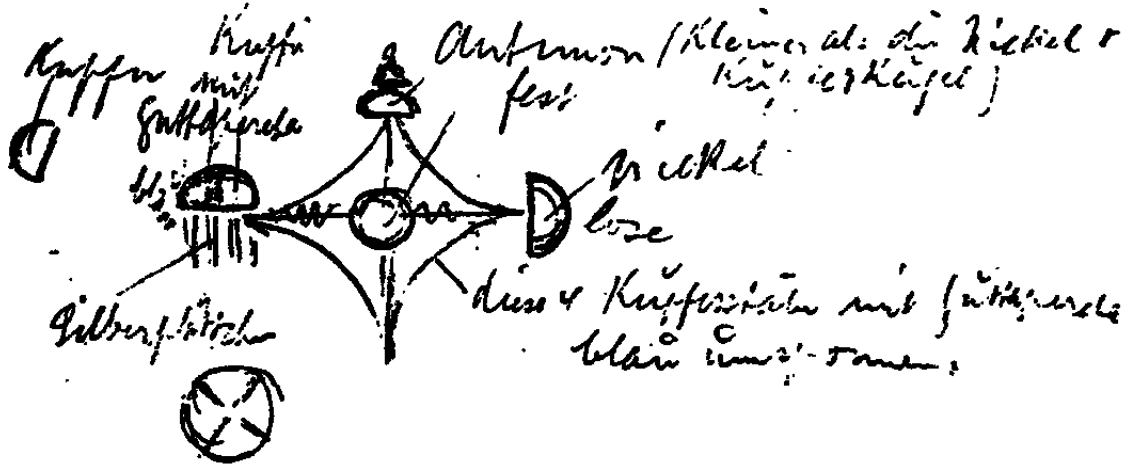 Kupfer
Kupfer
mit
Guttapercha
Antimon (Kleiner als die Nickel +
fest
Kupferkugel)
Nickel
lose
Silberplättchen
diese 4 Kupferstäbe mit Guttapercha
blau